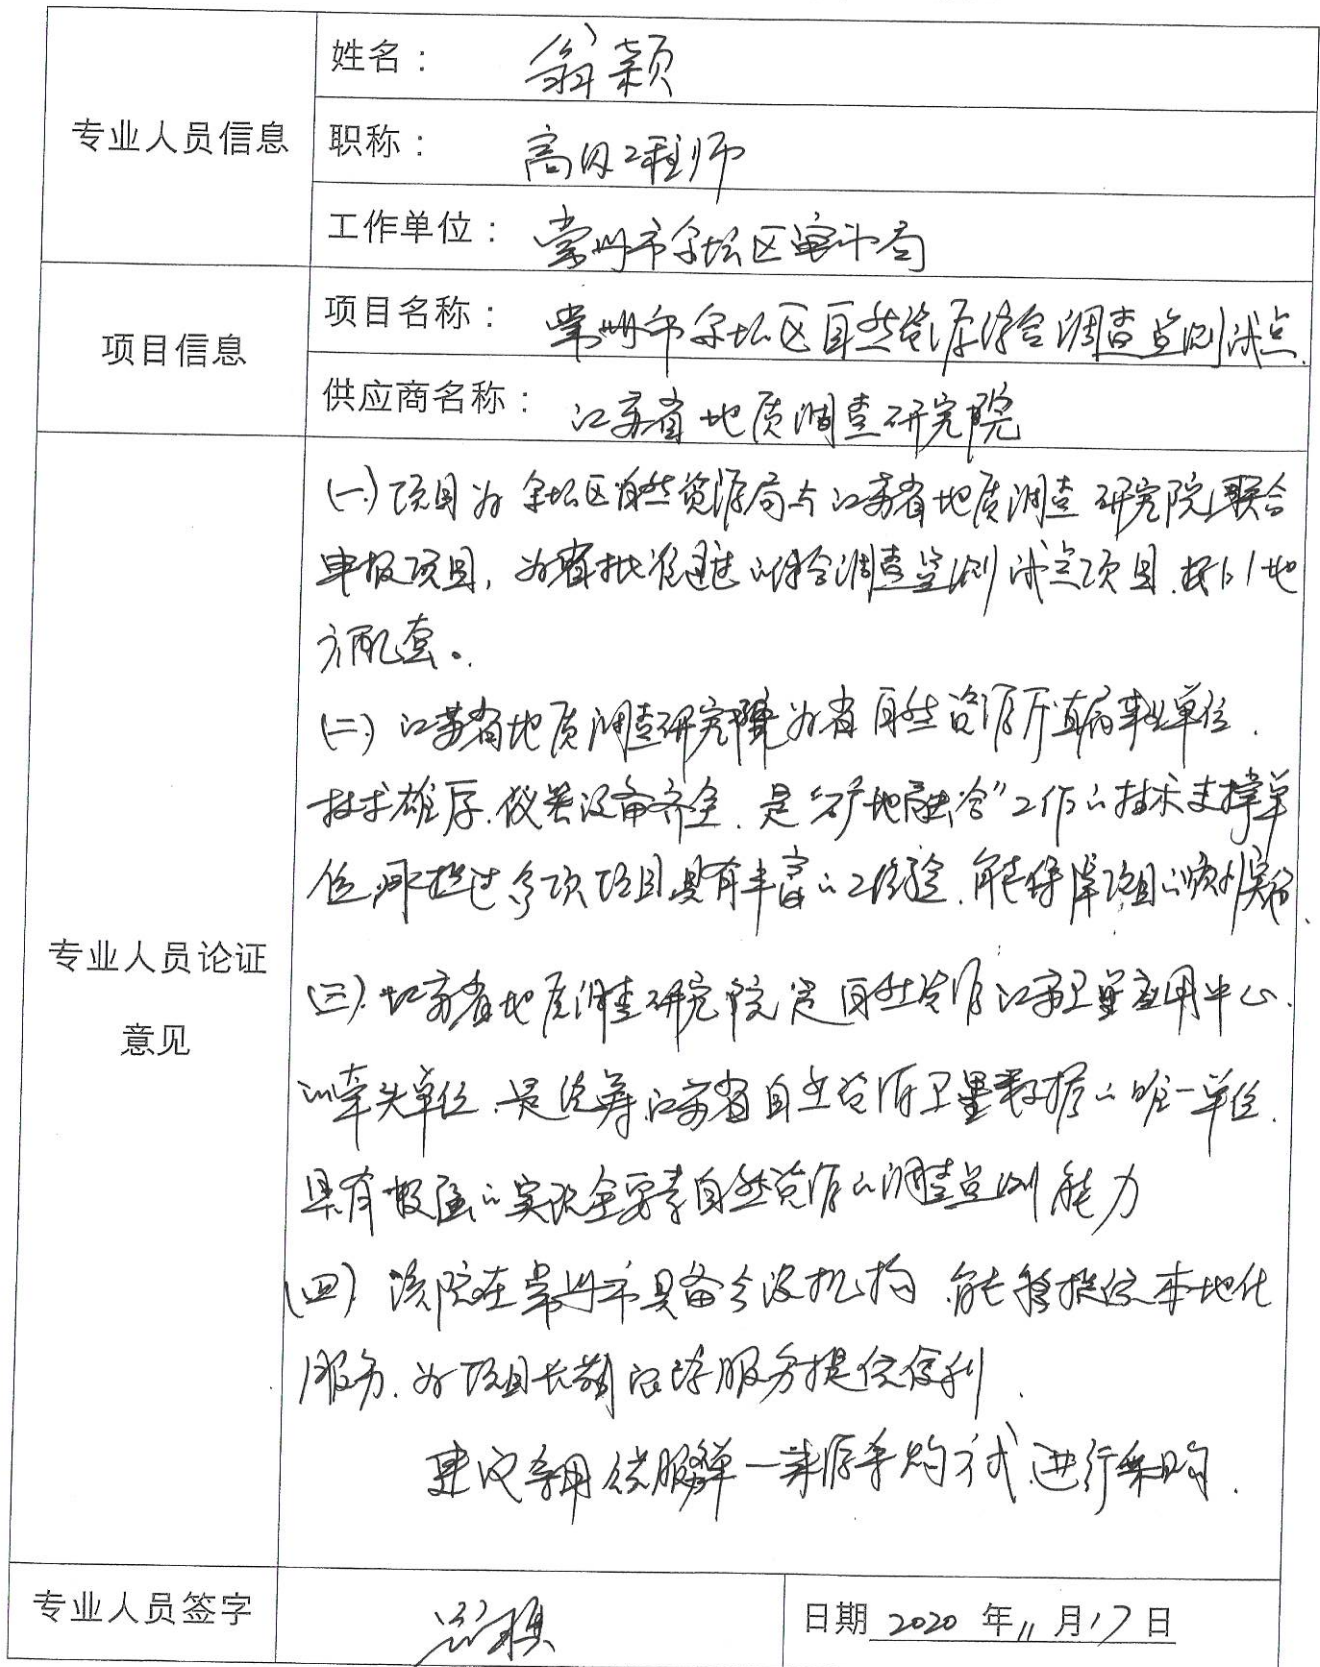 专业人员信息
姓名： 翁颖
职称： 高级工程师
工作单位： 常州市金坛区审计局
项目信息
项目名称： 常州市金坛区自然资源综合调查监测试点.
供应商名称： 江苏省地质调查研究院
专业人员论证
意见
(一) 项目为金坛区自然资源局与江苏省地质调查研究院联合
申报项目，为省批准通过的综合调查监测试点项目，按1:1地
方配套。
(二) 江苏省地质调查研究院为省自然资源厅直属事业单位，
技术雄厚，仪器设备齐全，是“矿地融合”工作的技术支撑单
位，承担过多项项目具有丰富的工作经验，能保障项目的顺利实施.
(三) 江苏省地质调查研究院是自然资源江苏卫星应用中心
的牵头单位，是统筹江苏省自然资源卫星数据的唯一单位，
具有极强的实现全要素自然资源的调查监测能力
(四) 该院在常州市具备分设机构，能够提供本地化
服务，为项目长期后续服务提供便利.
建议采用单一来源采购方式进行采购.
专业人员签字 翁颖
日期 2020 年 11 月 17 日